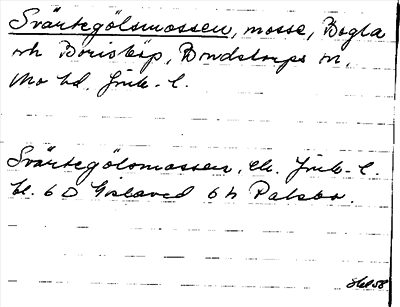 Svärtegölsmossen, mosse, Bogla
och Böriskåp, Bondstorps sn,
Mo hd. Jönk. l.
Svärtegölsmossen, ek. Jönk. l.
bl. 6 D Gislaved 6 h Palsbo.